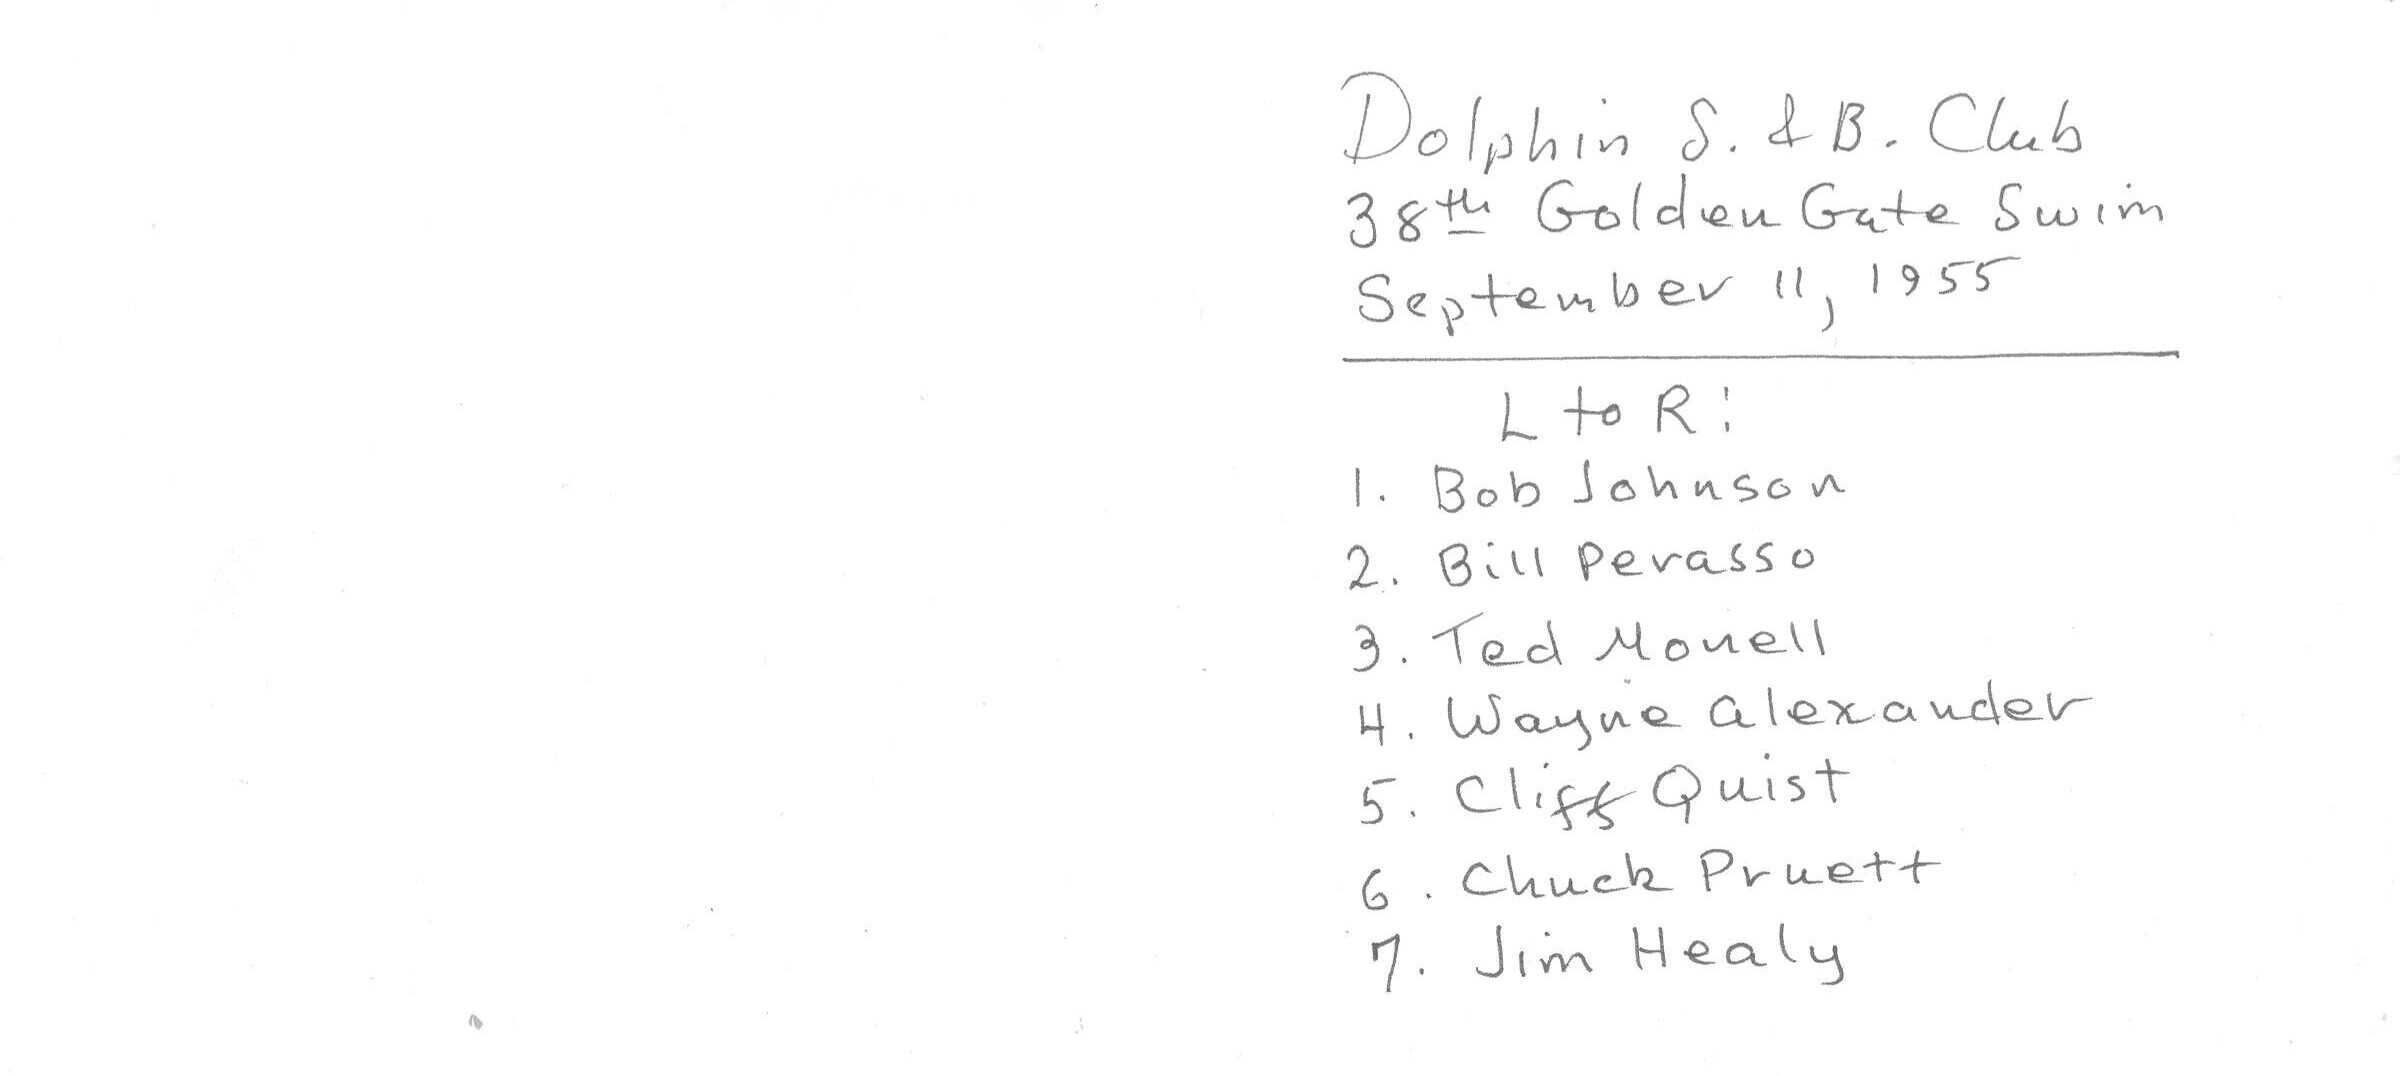 Dolphin S. & B. Club
38th Golden Gate Swim
September 11, 1955
L to R:
1. Bob Johnson
2. Bill Perasso
3. Ted Monell
4. Wayne Alexander
5. Cliff Quist
6. Chuck Pruett
7. Jim Healy